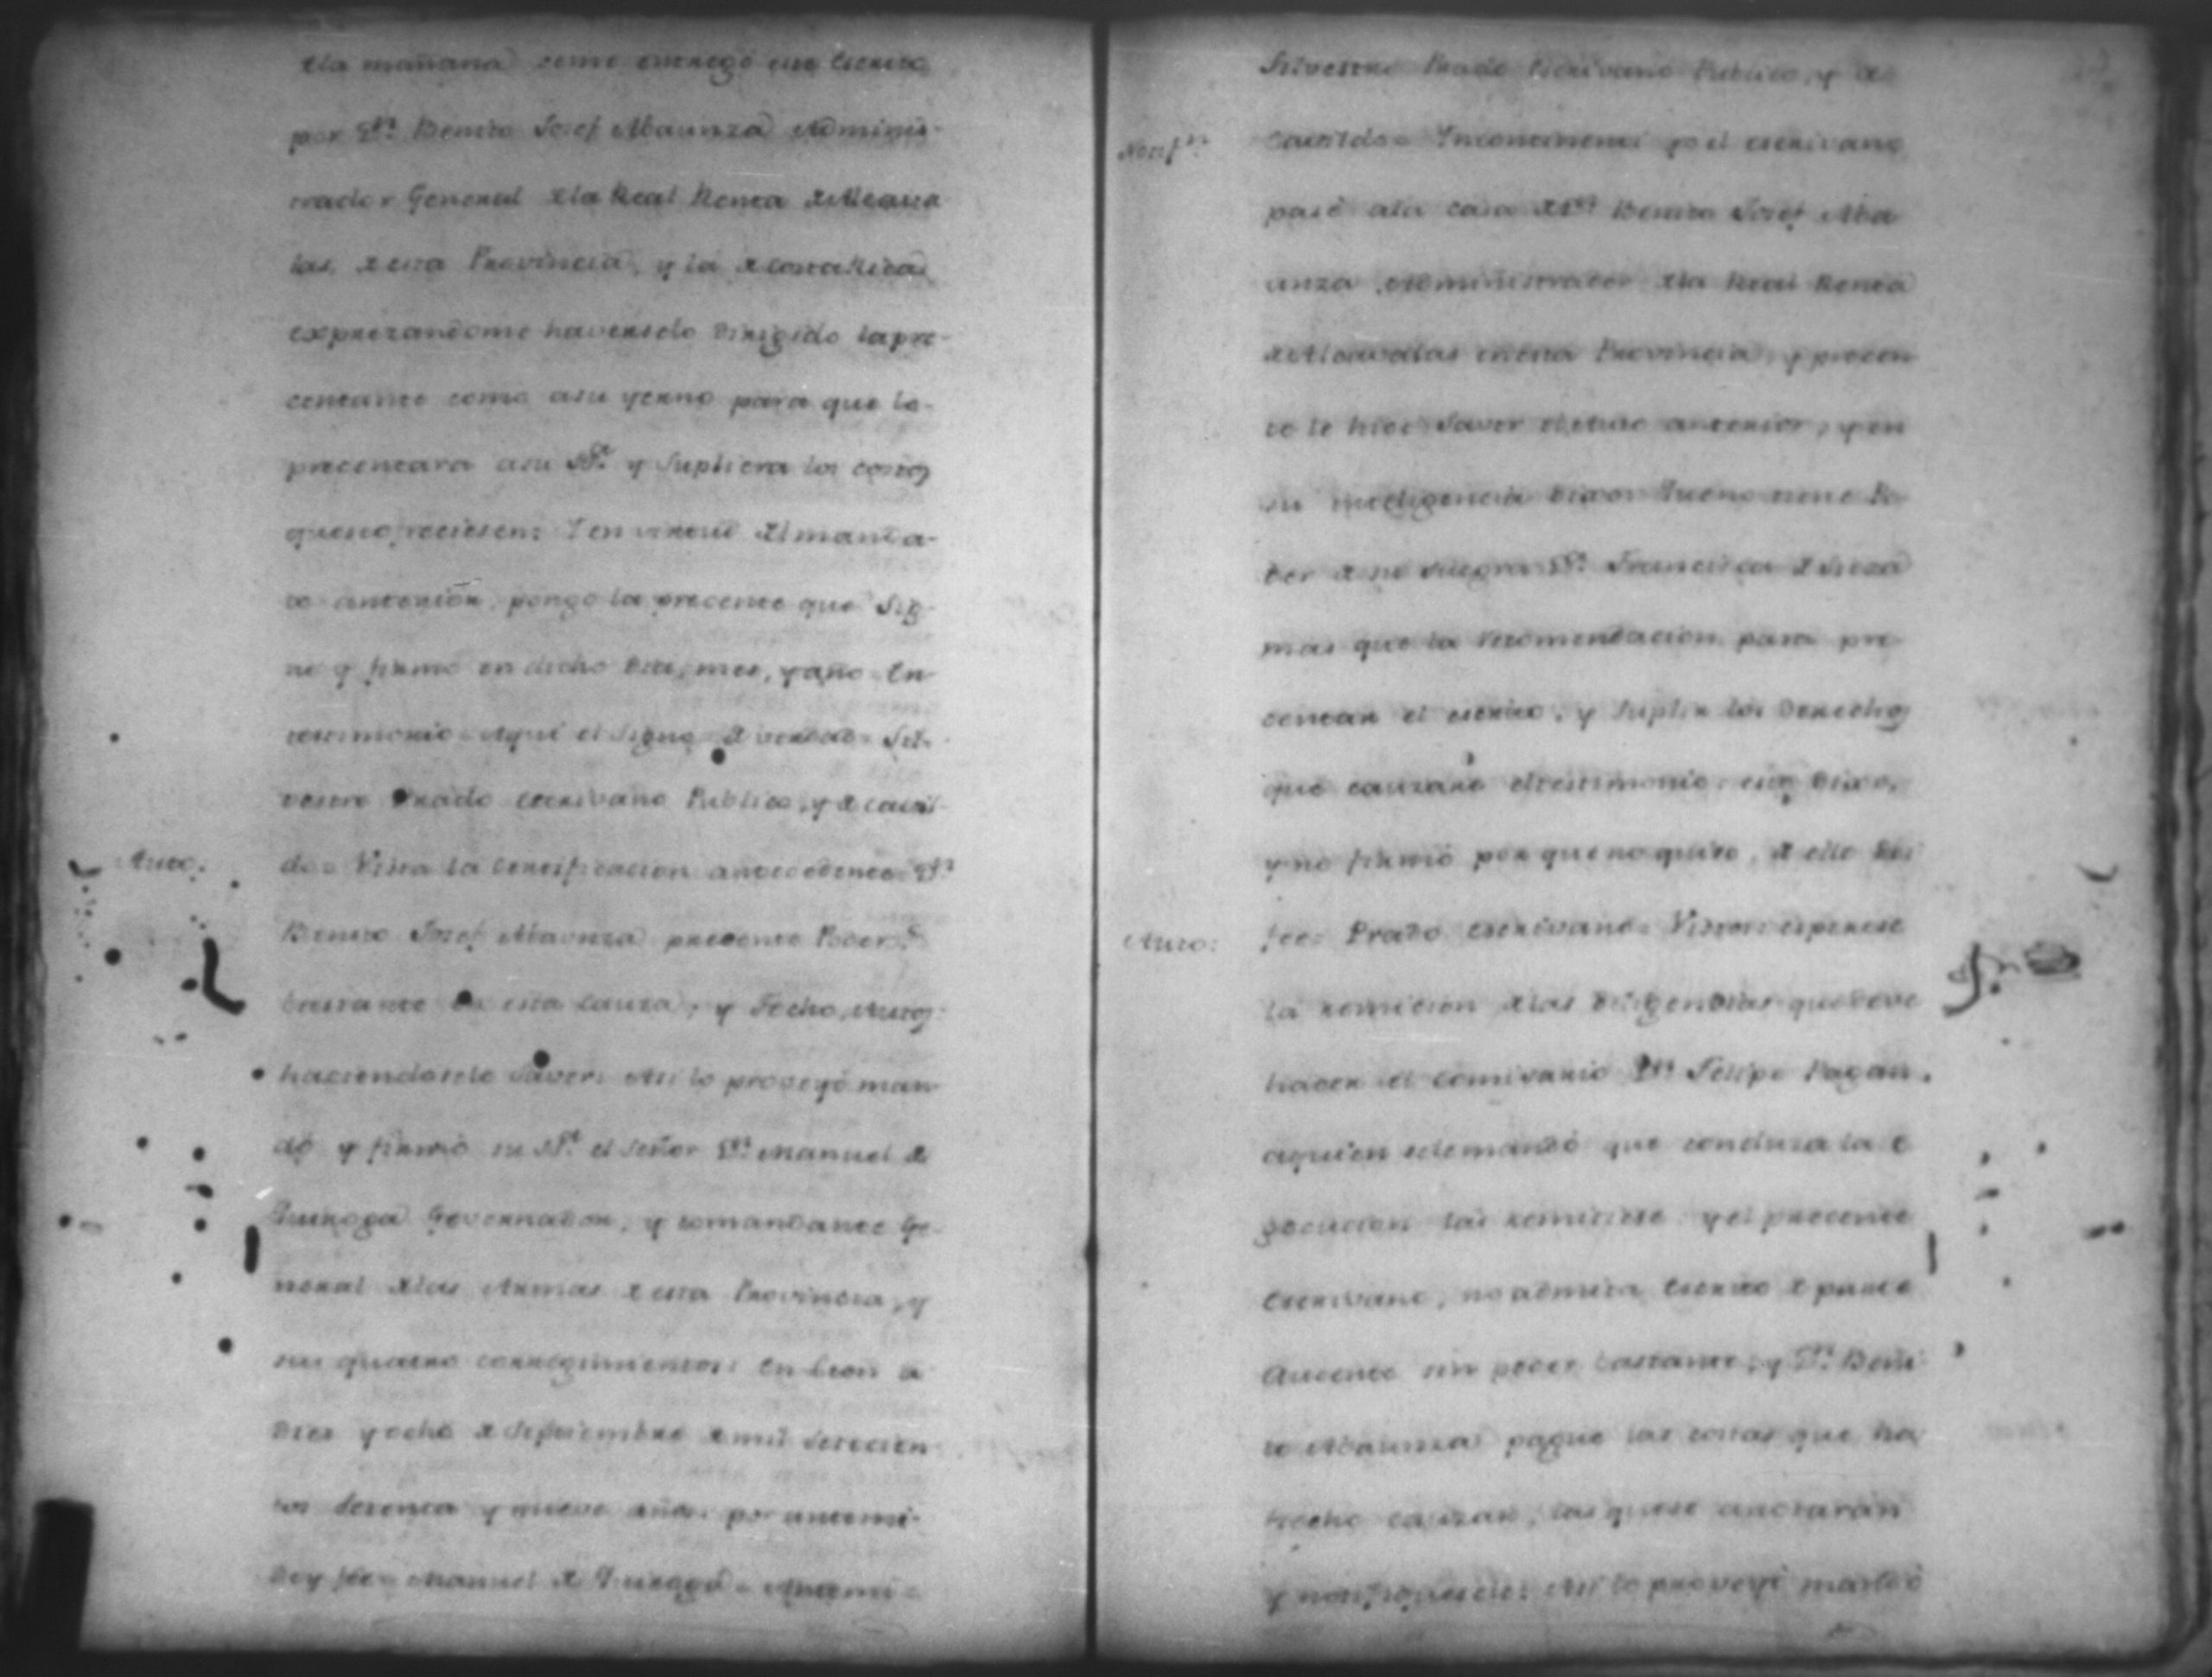 dla mañana seme entregó este Escrito
por Dn. Benito Josef Abaunza Adminis-
trador General dla Real Renta d Alcava
las, d esta Provincia, y la d Costa Rica
exprezandome haverselo dirigido la pre-
centante como asu yerno para que lo-
precentara asu Sa. y Supliera los costos
que se ofreciesen: Y en virtud del manda-
to anterior, pongo la precente que Sig-
no y firmo en dicho dia, mes, y año = En
testimonio = Aqui el Signo = d verdad = Sil-
vestre Prado Escrivano Publico, y d cavil-
Auto.
do = Vista la Certificacion antecedente = Dn
Benito Josef Abaunza precente Poder
bastante en esta Causa, y Fecho, Autos:
haciendosele Saver: Asi lo proveyó man
dó y firmó su Sa. el Señor Dn. Manuel d
Quiroga Governador, y Comandante Ge-
neral dlas Armas d esta Provincia, y
sus quatro corregimientos: En Leon a
dies y ocho d Septiembre d mil Setecien
tos sesenta y nueve años: por antemi-
doy fee = Manuel d Quiroga = Antemi =
Silvestre Prado Escrivano Publico, y d
Notifn.
Cavildo = Yncontinenti yo el escrivano
pasé ala casa d Dn Benito Josef Aba
unza Administrador dla Real Renta
d Alcavalas en esta Provincia, y precen
te le hice Saver el Auto anterior, y en
su inteligencia dixo: Que no tiene Po-
der d su suegra Da. Francisca d
mas que la recomendacion para pre
centar el escrito, y Suplir los Derechos
que cauzare el testimonio: esto dixo,
y no firmó por que no quiso, d ello doi
Auto:
fee = Prado Escrivano = Vistos: esperese
la remicion dlas Diligencias que deve
hacer el Comisario Dn Felipe Pagan,
aquien sele mandó que concluza la e
gecucion las remitiese y el precente
Escrivano, no admita Escrito d parte
Aucente sin poder bastante, y Dn. Beni
to Abaunza pague las costas que ha
hecho cauzar, las que se anotarán
y notifiquesele: Asi lo proveyó mandó